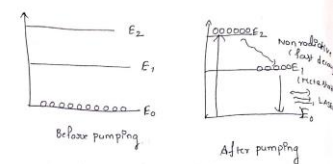 E2
E1
E0
Before pumping
E2
Nonradiative
(fast decay
E1
(Metastable
E0
After pumping